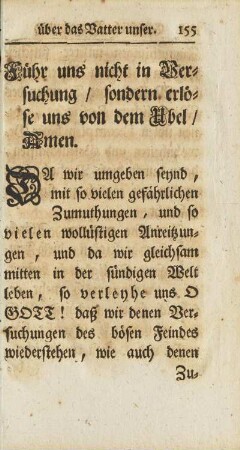 über das Vatter unser. 155
Führ uns nicht in Ver-
suchung / sondern erlö-
se uns von dem Ubel /
Amen.
DA wir umgeben seynd,
mit so vielen gefährlichen
Zumuthungen, und so
vielen wollüstigen Anreitzun-
gen, und da wir gleichsam
mitten in der sündigen Welt
leben, so verleyhe uns O
GOTT! daß wir denen Ver-
suchungen des bösen Feindes
wiederstehen, wie auch denen
Zu-